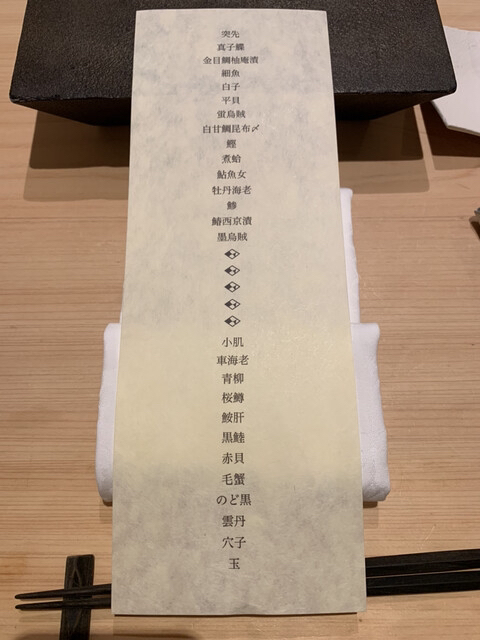 突先
真子鰈
金目鯛柚庵漬
細魚
白子
平貝
蛍烏賊
白甘鯛昆布〆
鰹
煮蛤
鮎魚女
牡丹海老
鯵
鰆西京漬
墨烏賊
小肌
車海老
青柳
桜鱒
鮟肝
黒鮭
赤貝
毛蟹
のど黒
雲丹
穴子
玉